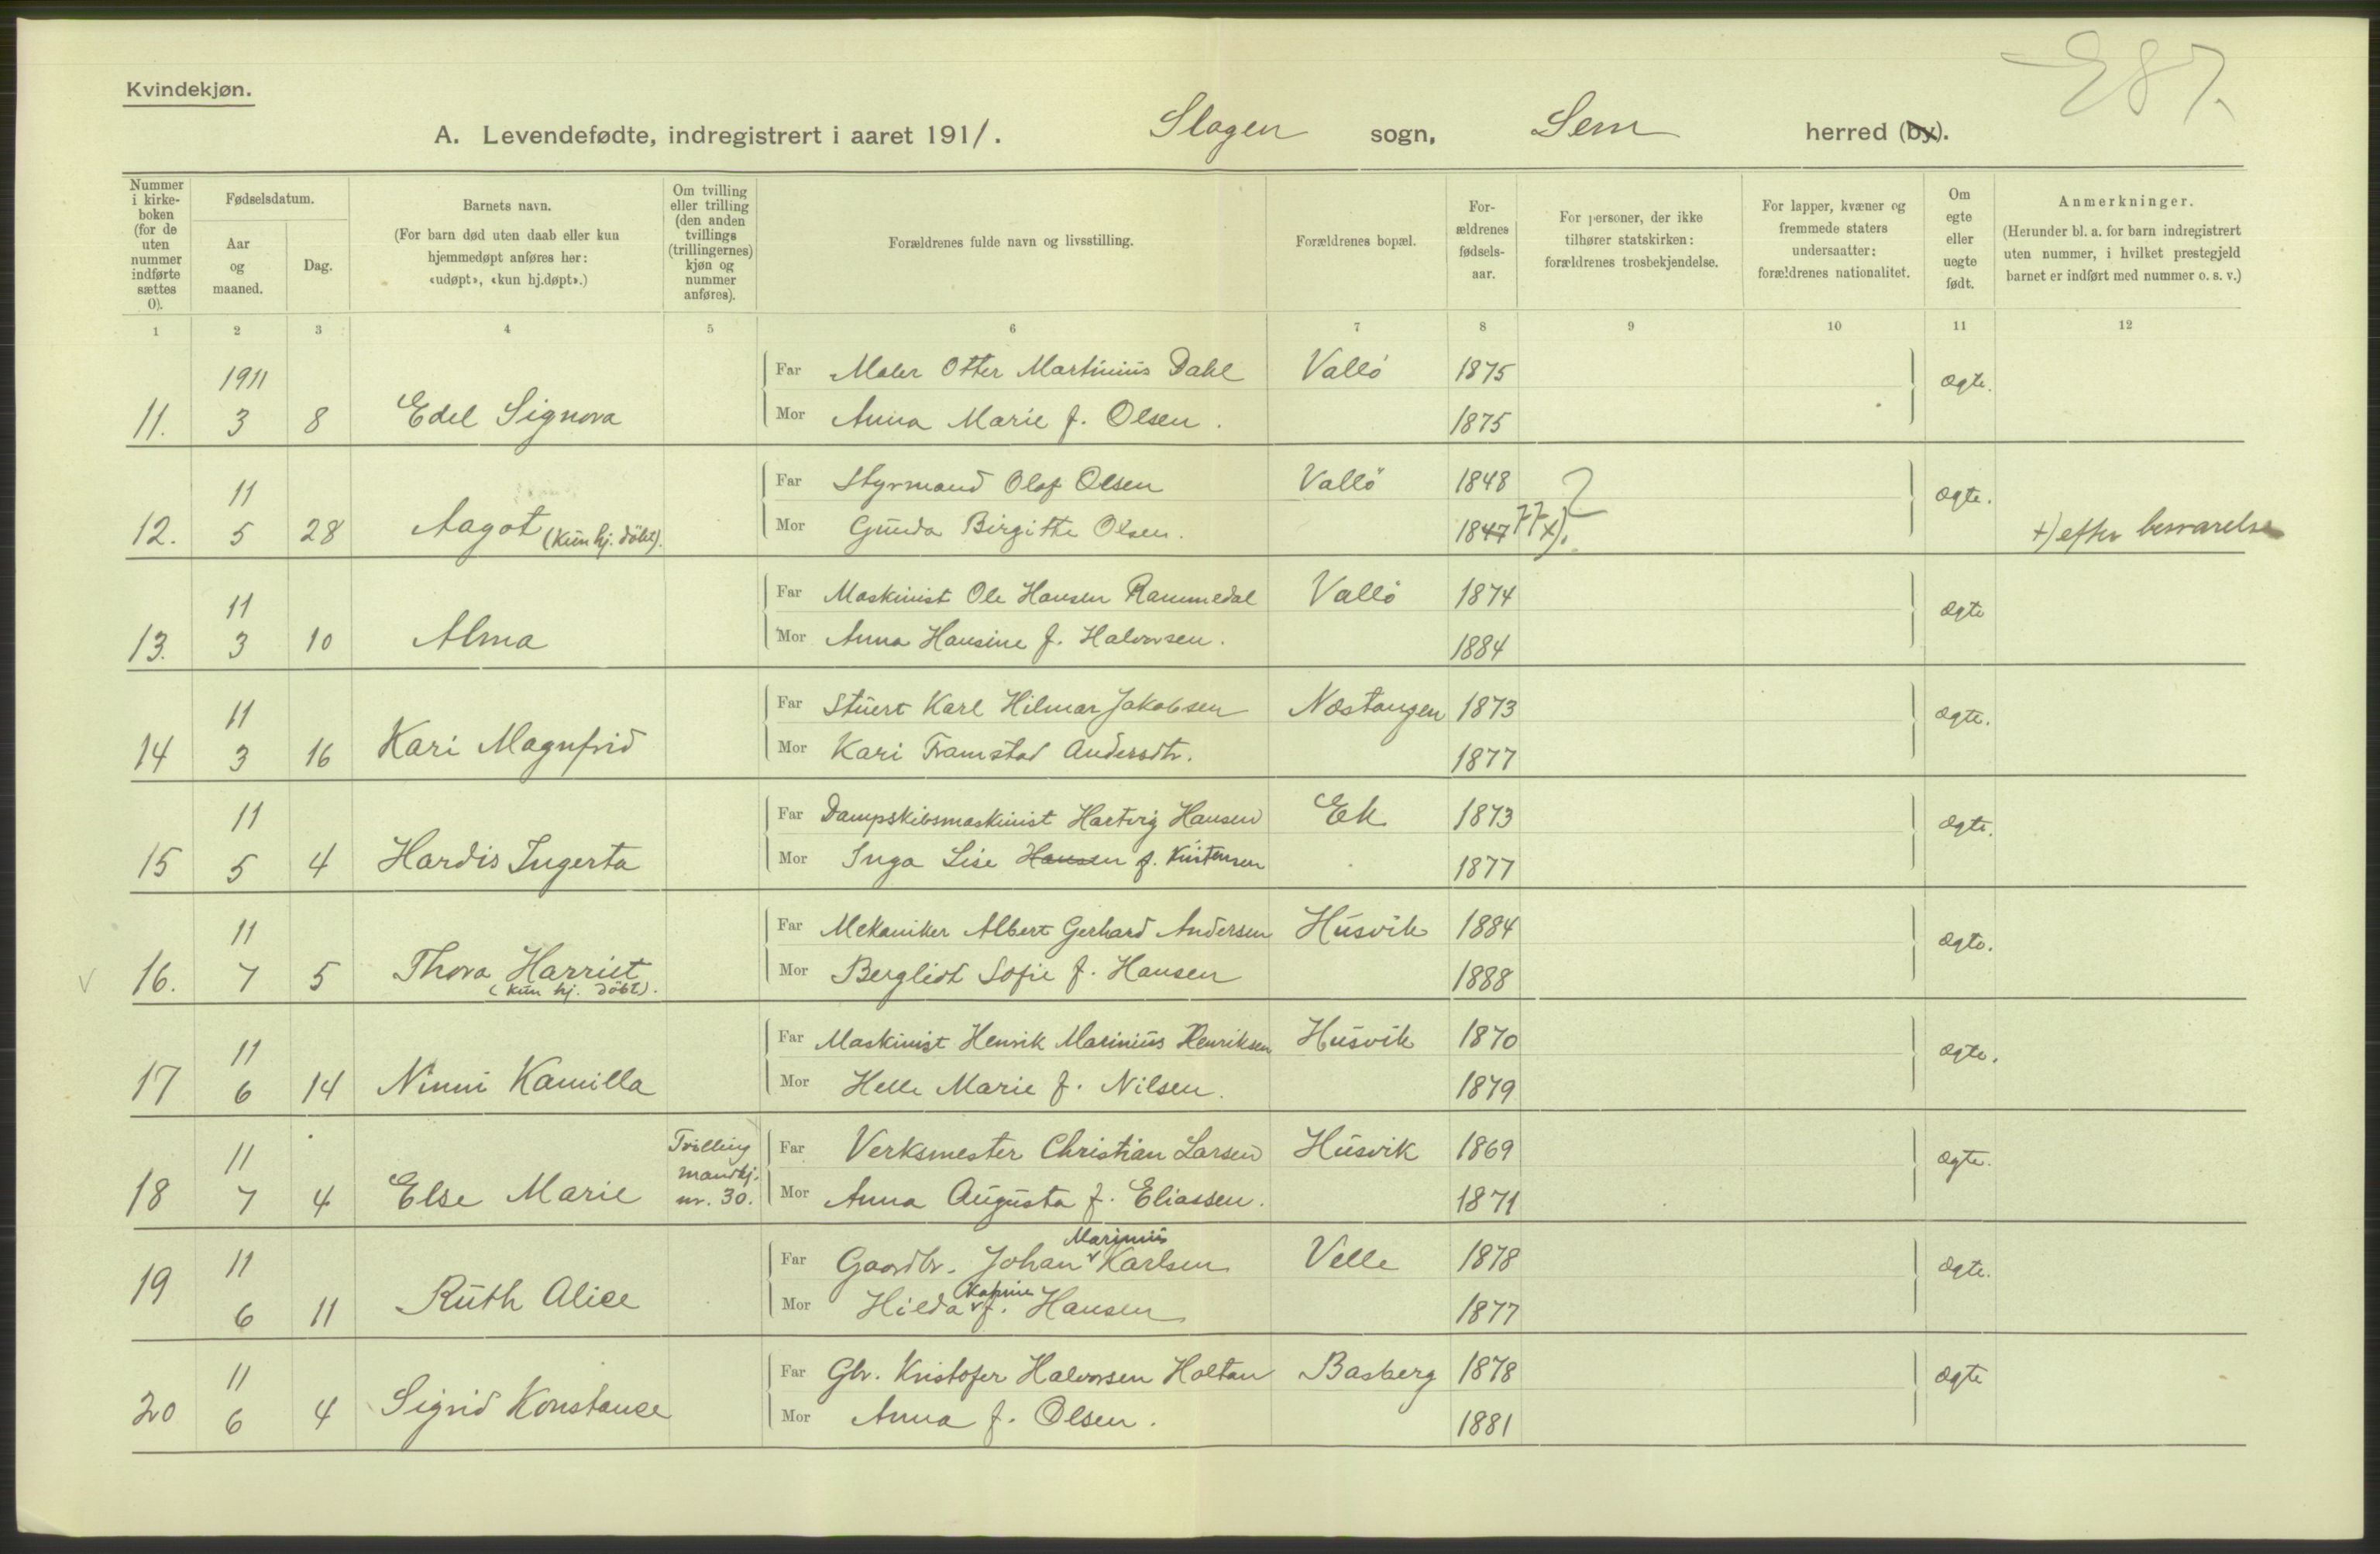 E 87.
Kvindekjøn.
A. Levendefødte, indregistrert i aaret 1911. Slagen sogn, Sem herred (by).
Nummer i kirke-boken (for de uten nummer indførte sættes 0).
Fødselsdatum.
Aar og maaned.
Dag.
Barnets navn.
(For barn død uten daab eller kun hjemmedøpt anføres her: «udøpt», «kun hj.døpt».)
Om tvilling eller trilling (den anden tvillings (trillingernes) kjøn og nummer anføres).
Forældrenes fulde navn og livsstilling.
Forældrenes bopæl.
For-ældrenes fødsels-aar.
For personer, der ikke tilhører statskirken: forældrenes trosbekjendelse.
For lapper, kvæner og fremmede staters undersaatter: forældrenes nationalitet.
Om egte eller uegte født.
Anmerkninger.
(Herunder bl. a. for barn indregistrert uten nummer, i hvilket prestegjeld barnet er indført med nummer o. s. v.)
1 2 3 4 5 6 7 8 9 10 11 12
1911 Far Maler Otter Martinius Dahl Vallö 1875 ægte.
11. 3 8 Edel Signora Mor Anna Marie f. Olsen. 1875
11 Far Styrmand Olaf Olsen Vallö 1848 ? ægte.
12. 5 28 Aagot (kun hj. döbt). Mor Gunda Birgitte Olsen. 1847 77 x). +) efter besvarelse
11 Far Maskinist Ole Hansen Rammedal Vallö 1874 ægte
13. 3 10 Alma Mor Anna Hansine f. Halvorsen. 1884
11 Far Stuert Karl Hilmar Jakobsen Næstangen 1873 ægte.
14 3 16 Kari Magnfrid Mor Kari Framstad Andersdtr. 1877
11 Far Dampskibsmaskinist Hartvig Hansen Ek 1873 ægte.
15 5 4 Hardis Ingerta Mor Inga Lise Hansen f. Kristensen 1877
11 Far Mekaniker Albert Gerhard Andersen Husvik 1884 ægte.
16. 7 5 Thora Harriet (kun hj. döbt). Mor Bergliot Sofie f. Hansen 1888
11 Far Maskinist Henrik Marinius Henriksen Husvik 1870 ægte.
17 6 14 Ninni Kamilla Mor Helle Marie f. Nilsen. 1879
11 Tvilling mandkj. nr. 30. Far Verksmester Christian Larsen Husvik 1869 ægte.
18 7 4 Else Marie Mor Anna Augusta f. Eliassen. 1871
11 Far Gaardbr. Johan Marinius Karlsen Velle 1878 ægte.
19 6 11 Ruth Alice Mor Hilda f. Hansen 1877
11 Far Gbr. Kristofer Halvorsen Holtan Basberg 1878 ægte
20 6 4 Sigrid Konstance Mor Anna f. Olsen. 1881